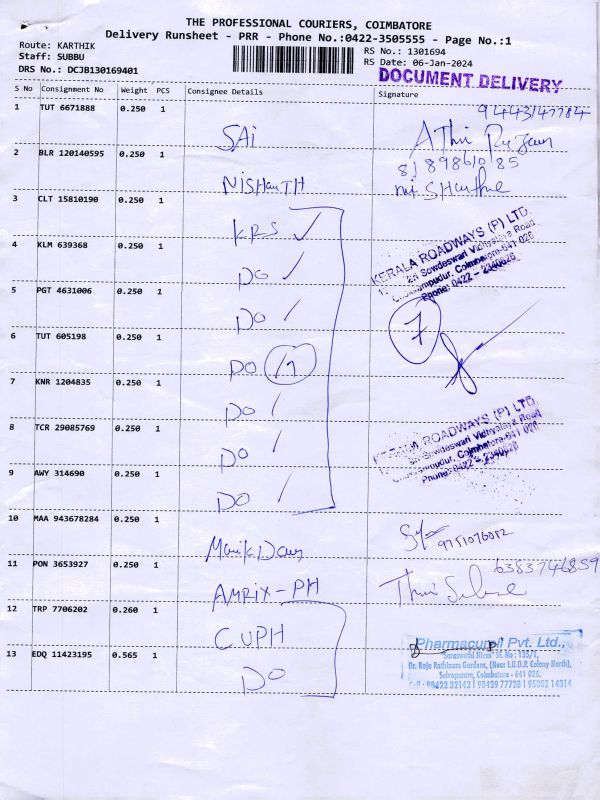 THE PROFESSIONAL COURIERS, COIMBATORE
Delivery Runsheet - PRR - Phone No.:0422-3505555 - Page No.:1
Route: KARTHIK
Staff: SUBBU
DRS No.: DCJB130169401
RS No.: 1301694
RS Date: 06-Jan-2024
DOCUMENT DELIVERY
S No Consignment No Weight PCS Consignee Details Signature
1 TUT 6671888 0.250 1 SAi
9443147784
2 BLR 120140595 0.250 1 NISHANTH
8189861085
3 CLT 15810190 0.250 1 KRS
KERALA ROADWAYS (P) LTD.
Sri Sowdeswari Vidhyalaya Road
Coimbatore-641 026
Phone: 0422 - 2340026
4 KLM 639368 0.250 1 DO
5 PGT 4631006 0.250 1 DO
7
6 TUT 605198 0.250 1 DO /7
7 KNR 1204835 0.250 1 DO
8 TCR 29085769 0.250 1 DO
KERALA ROADWAYS (P) LTD.
Sri Sowdeswari Vidhyalaya Road
Coimbatore-641 026
Phone: 0422 - 2340026
9 AWY 314690 0.250 1 DO
10 MAA 943678284 0.250 1
11 PON 3653927 0.250 1 AMRIX-PH
6383746859
12 TRP 7706202 0.260 1 C.UPH
13 EDQ 11423195 0.565 1 DO
Pharmacupoil Pvt. Ltd.,
Dr. Raja Rathinam Gardens, (Near I.U.D.P. Colony North),
Selvapuram, Coimbatore - 641 026.
Cell : 98422 32143 | 98439 77728 | 95002 14314